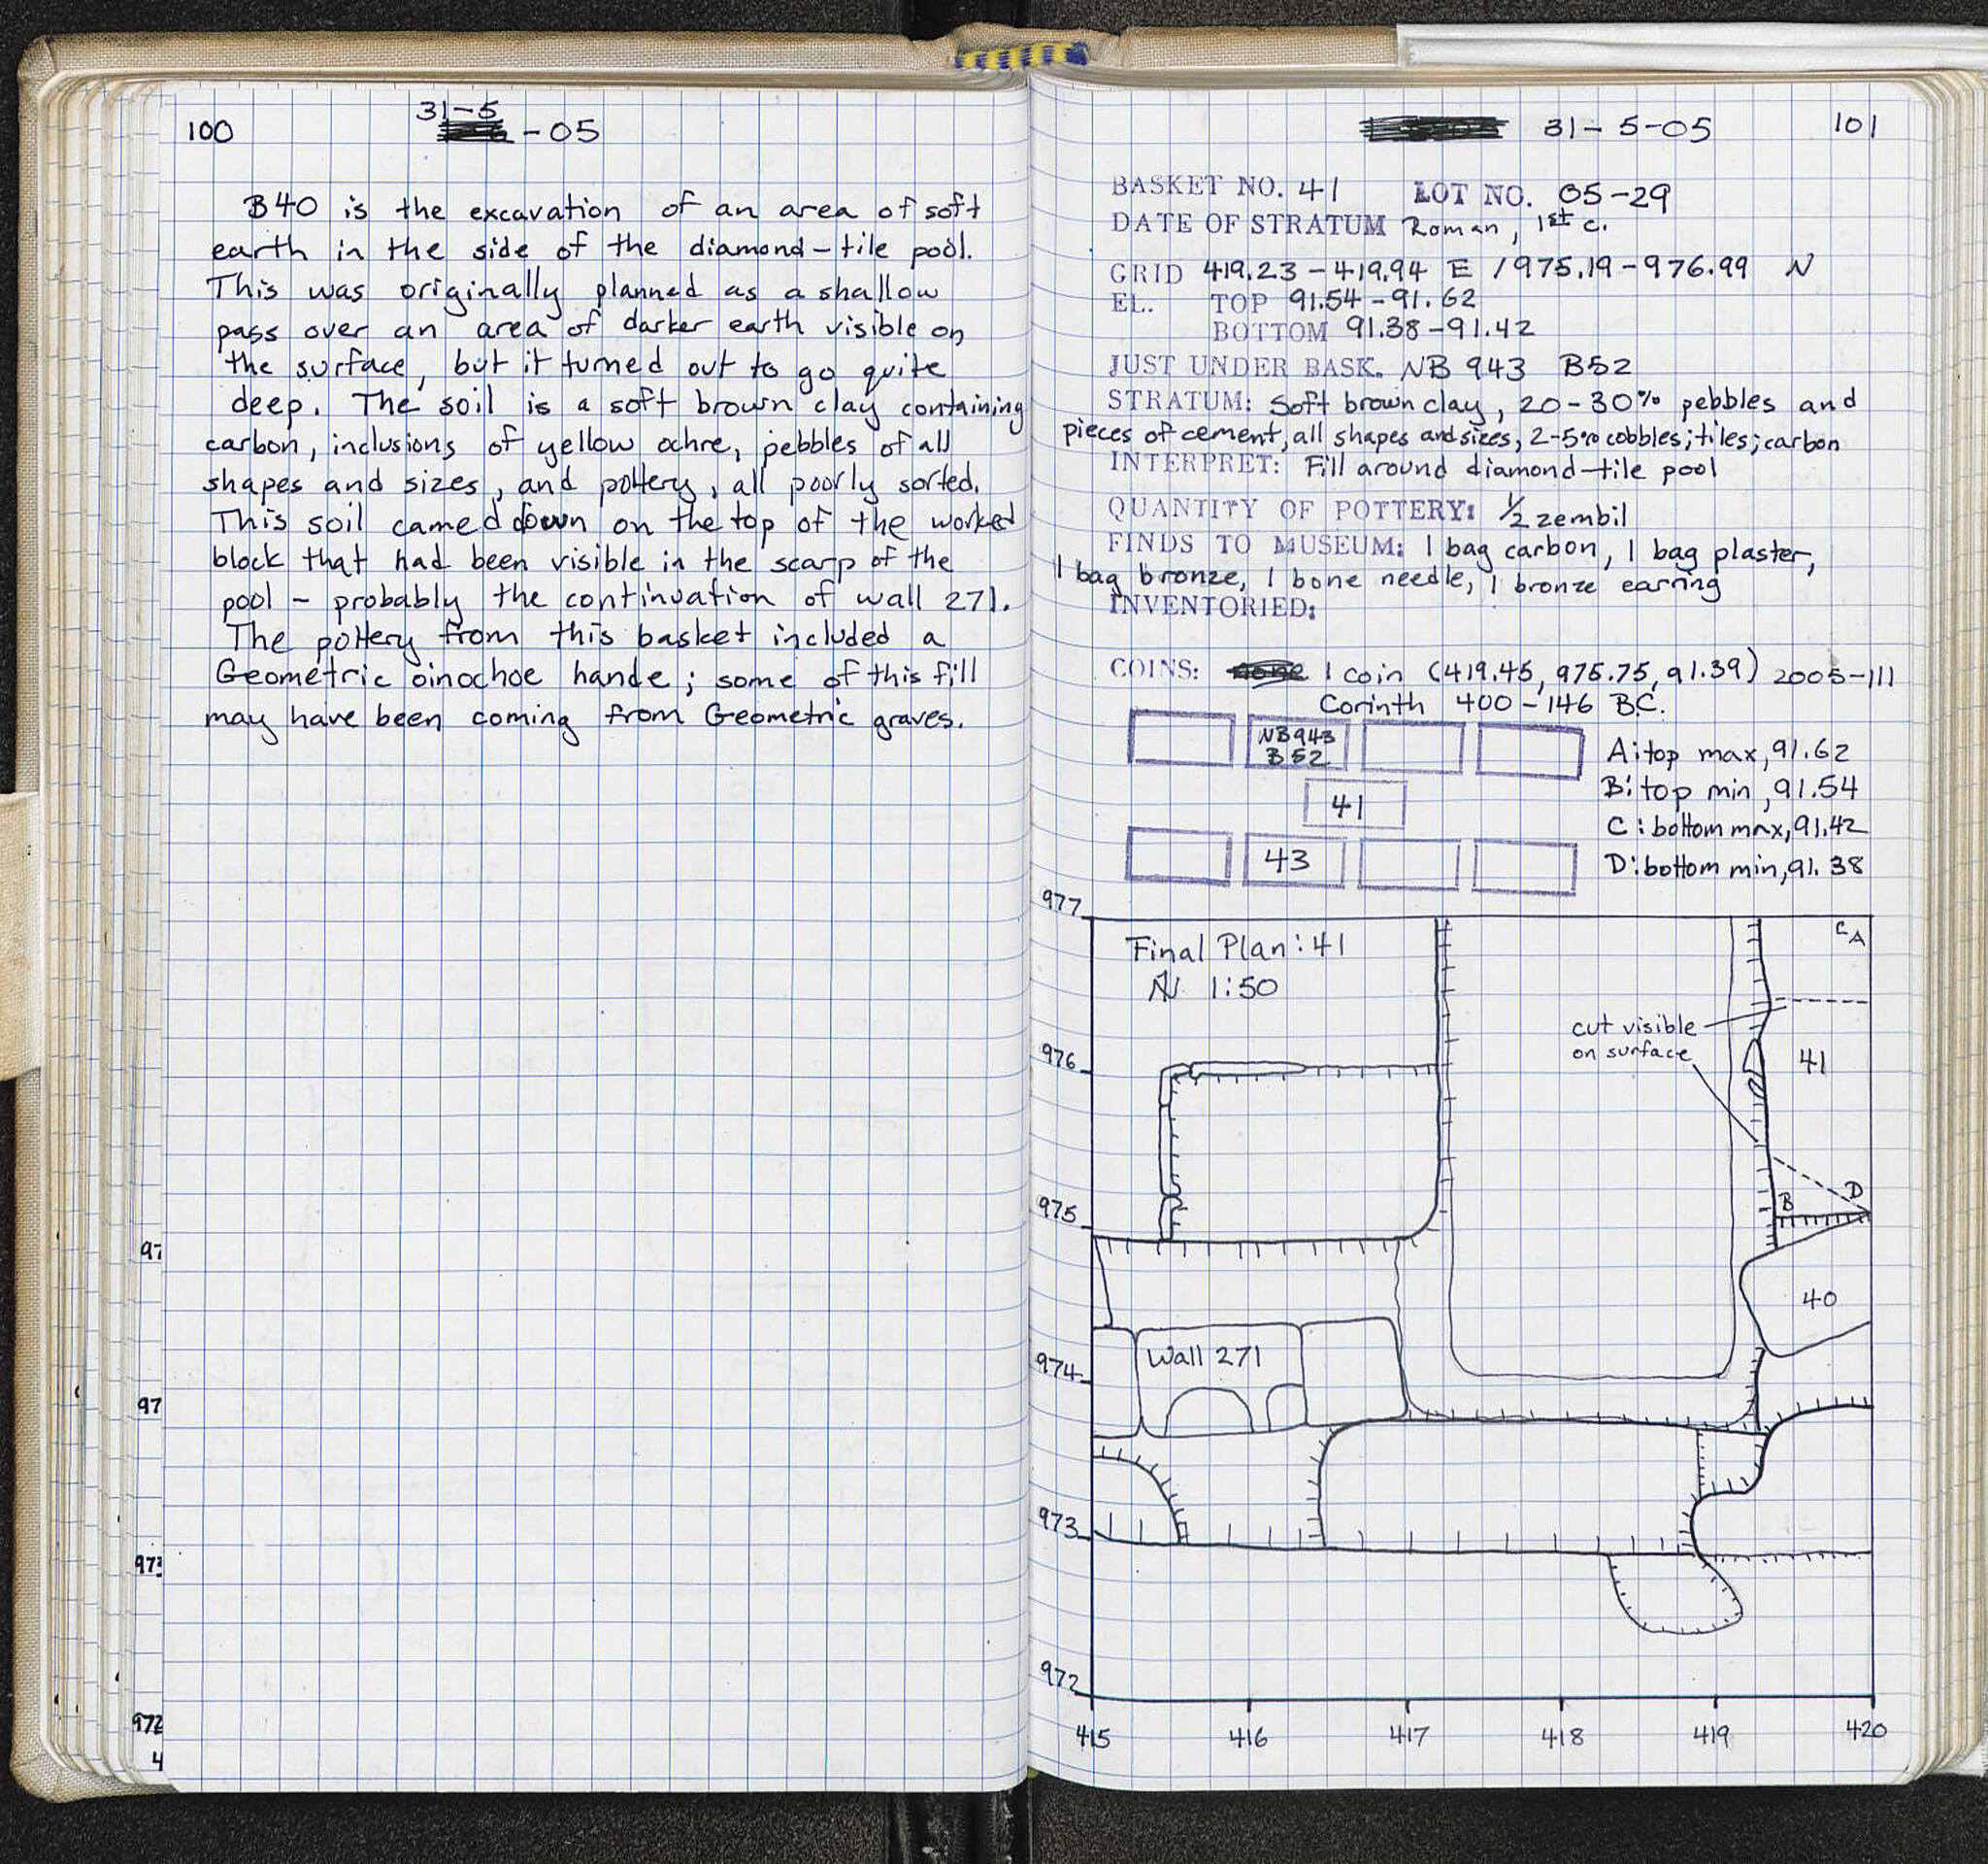 100
31-5
-05
B40 is the excavation of an area of soft
earth in the side of the diamond-tile pool.
This was originally planned as a shallow
pass over an area of darker earth visible on
the surface, but it turned out to go quite
deep. The soil is a soft brown clay containing
carbon, inclusions of yellow ochre, pebbles of all
shapes and sizes, and pottery, all poorly sorted.
This soil came down on the top of the worked
block that had been visible in the scarp of the
pool - probably the continuation of wall 271.
The pottery from this basket included a
Geometric oinochoe hande; some of this fill
may have been coming from Geometric graves.
97
97
973
972
4
31-5-05
101
BASKET NO. 41 LOT NO. 05-29
DATE OF STRATUM Roman, 1st c.
GRID 419.23-419.94 E / 975.19-976.99 N
EL. TOP 91.54-91.62
BOTTOM 91.38-91.42
JUST UNDER BASK. NB 943 B52
STRATUM: Soft brown clay, 20-30% pebbles and
pieces of cement, all shapes and sizes, 2-5% cobbles; tiles; carbon
INTERPRET: Fill around diamond-tile pool
QUANTITY OF POTTERY: 1/2 zembil
FINDS TO MUSEUM: 1 bag carbon, 1 bag plaster,
1 bag bronze, 1 bone needle, 1 bronze earring
INVENTORIED:
COINS: 1 coin (419.45, 975.75, 91.39) 2005-111
Corinth 400-146 B.C.
NB943
B52
41
43
A: top max, 91.62
B: top min, 91.54
C: bottom max, 91.42
D: bottom min, 91.38
977
Final Plan: 41
N 1:50
C A
cut visible
on surface
976
41
975
B D
40
974
Wall 271
973
972
415 416 417 418 419 420